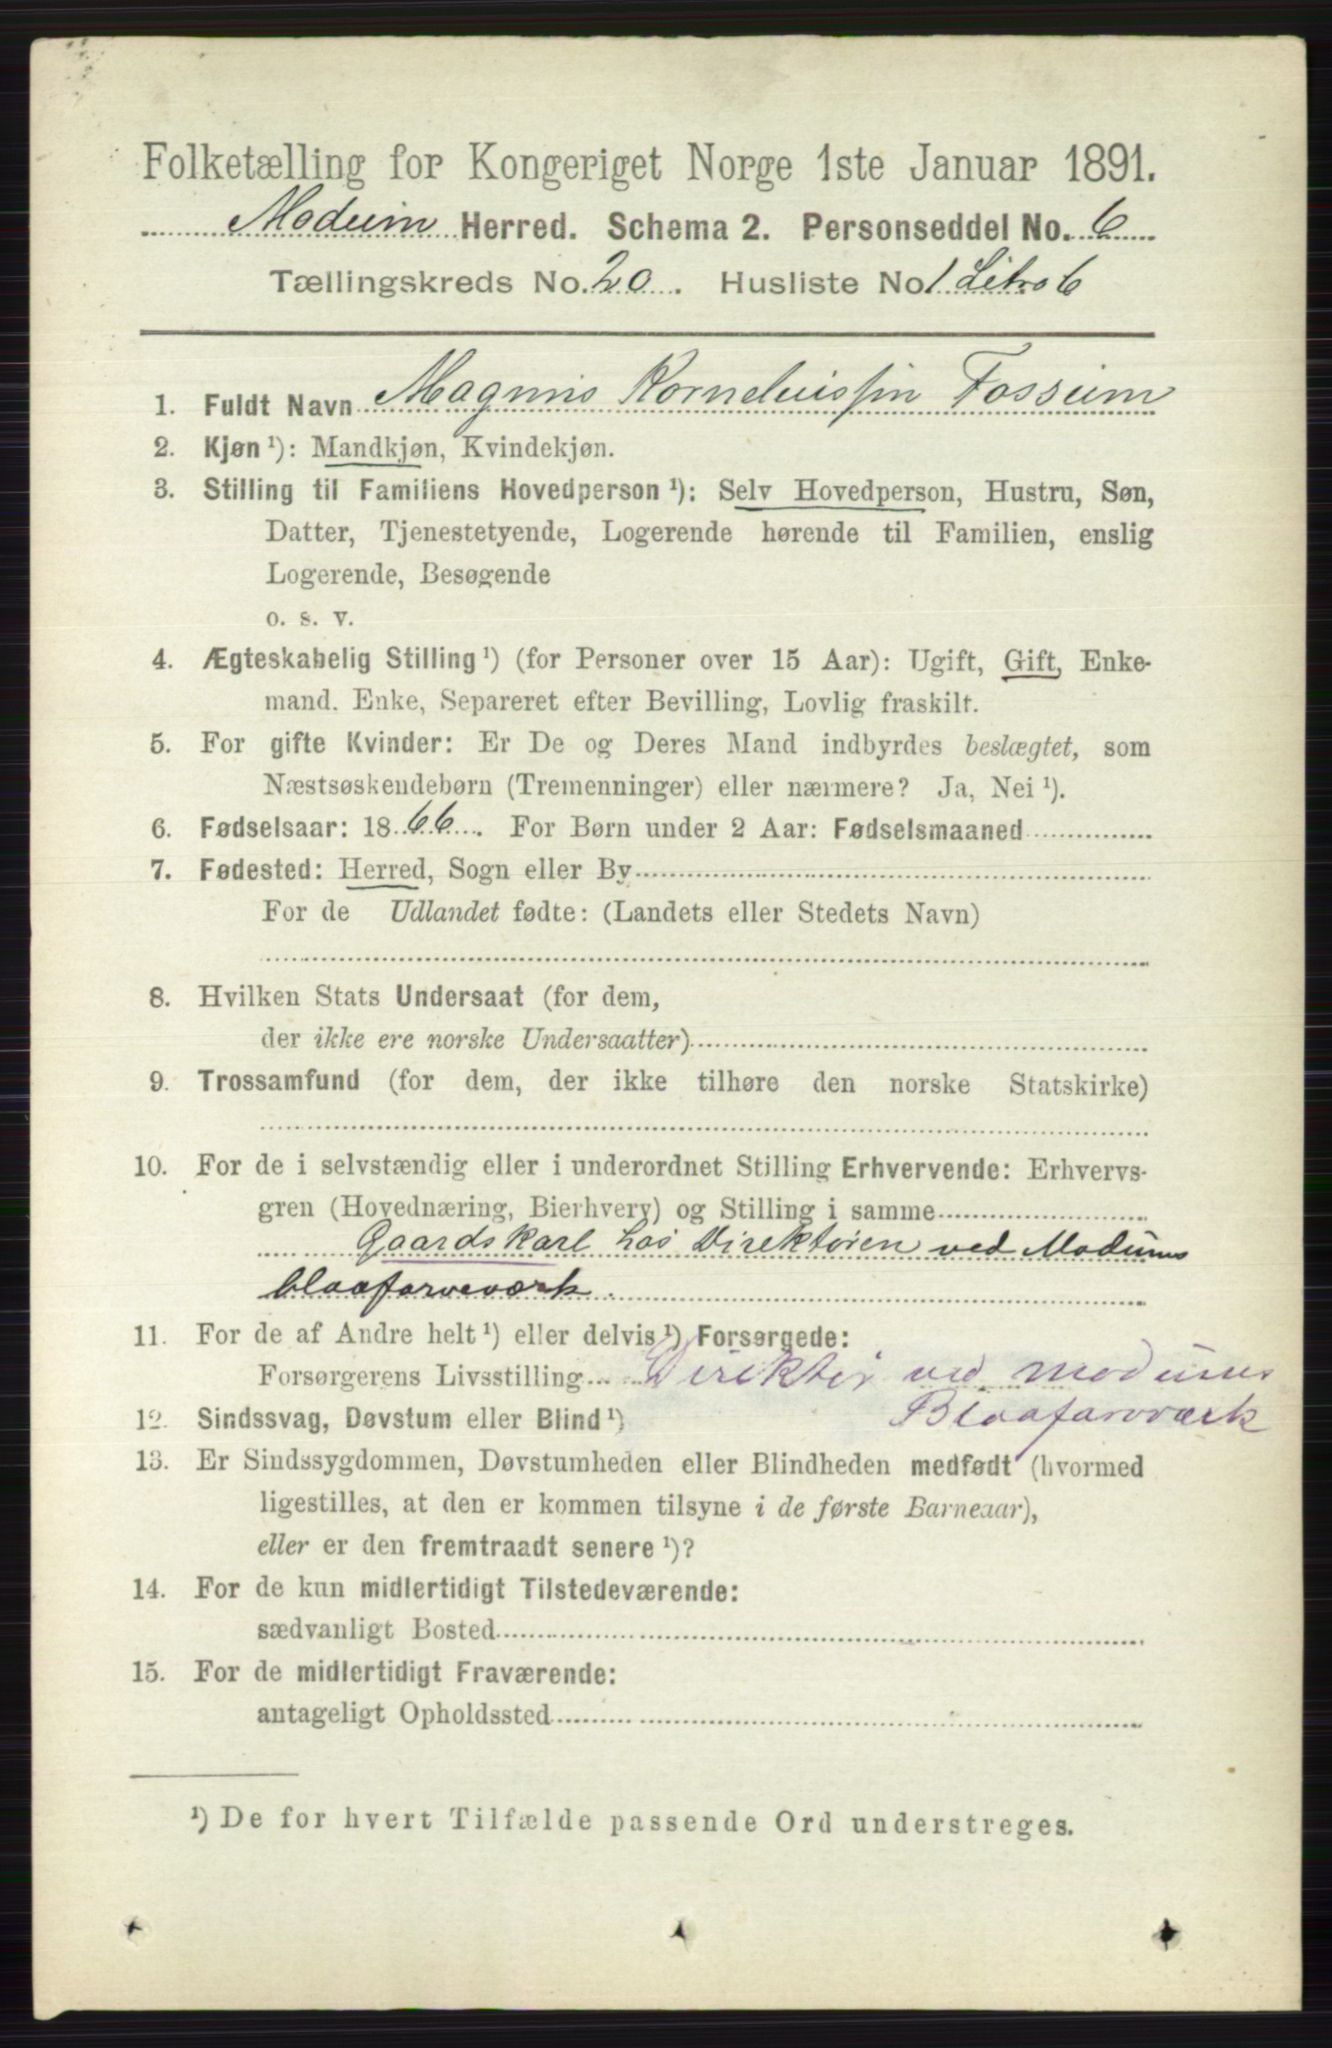 Folketælling for Kongeriget Norge 1ste Januar 1891.
Modum Herred. Schema 2. Personseddel No. 6
Tællingskreds No. 20. Husliste No. 1 Litra b
1. Fuldt Navn Magnus Korneliussen Fossum
2. Kjøn ¹): Mandkjøn, Kvindekjøn.
3. Stilling til Familiens Hovedperson ¹): Selv Hovedperson, Hustru, Søn,
Datter, Tjenestetyende, Logerende hørende til Familien, enslig
Logerende, Besøgende
o. s. v.
4. Ægteskabelig Stilling ¹) (for Personer over 15 Aar): Ugift, Gift, Enke-
mand. Enke, Separeret efter Bevilling, Lovlig fraskilt.
5. For gifte Kvinder: Er De og Deres Mand indbyrdes beslægtet, som
Næstsøskendebørn (Tremenninger) eller nærmere? Ja, Nei ¹).
6. Fødselsaar: 1866. For Børn under 2 Aar: Fødselsmaaned
7. Fødested: Herred, Sogn eller By
For de Udlandet fødte: (Landets eller Stedets Navn)
8. Hvilken Stats Undersaat (for dem,
der ikke ere norske Undersaatter)
9. Trossamfund (for dem, der ikke tilhøre den norske Statskirke)
10. For de i selvstændig eller i underordnet Stilling Erhvervende: Erhvervs-
gren (Hovednæring, Bierhverv) og Stilling i samme
Gaardskarl hos Direktøren ved Modums
blaafarveværk.
11. For de af Andre helt ¹) eller delvis ¹) Forsørgede:
Forsørgerens Livsstilling Direktør ved Modums
Blaafarværk
12. Sindssvag, Døvstum eller Blind ¹)
13. Er Sindssygdommen, Døvstumheden eller Blindheden medfødt (hvormed
ligestilles, at den er kommen tilsyne i de første Barneaar),
eller er den fremtraadt senere ¹)?
14. For de kun midlertidigt Tilstedeværende:
sædvanligt Bosted
15. For de midlertidigt Fraværende:
antageligt Opholdssted
¹) De for hvert Tilfælde passende Ord understreges.